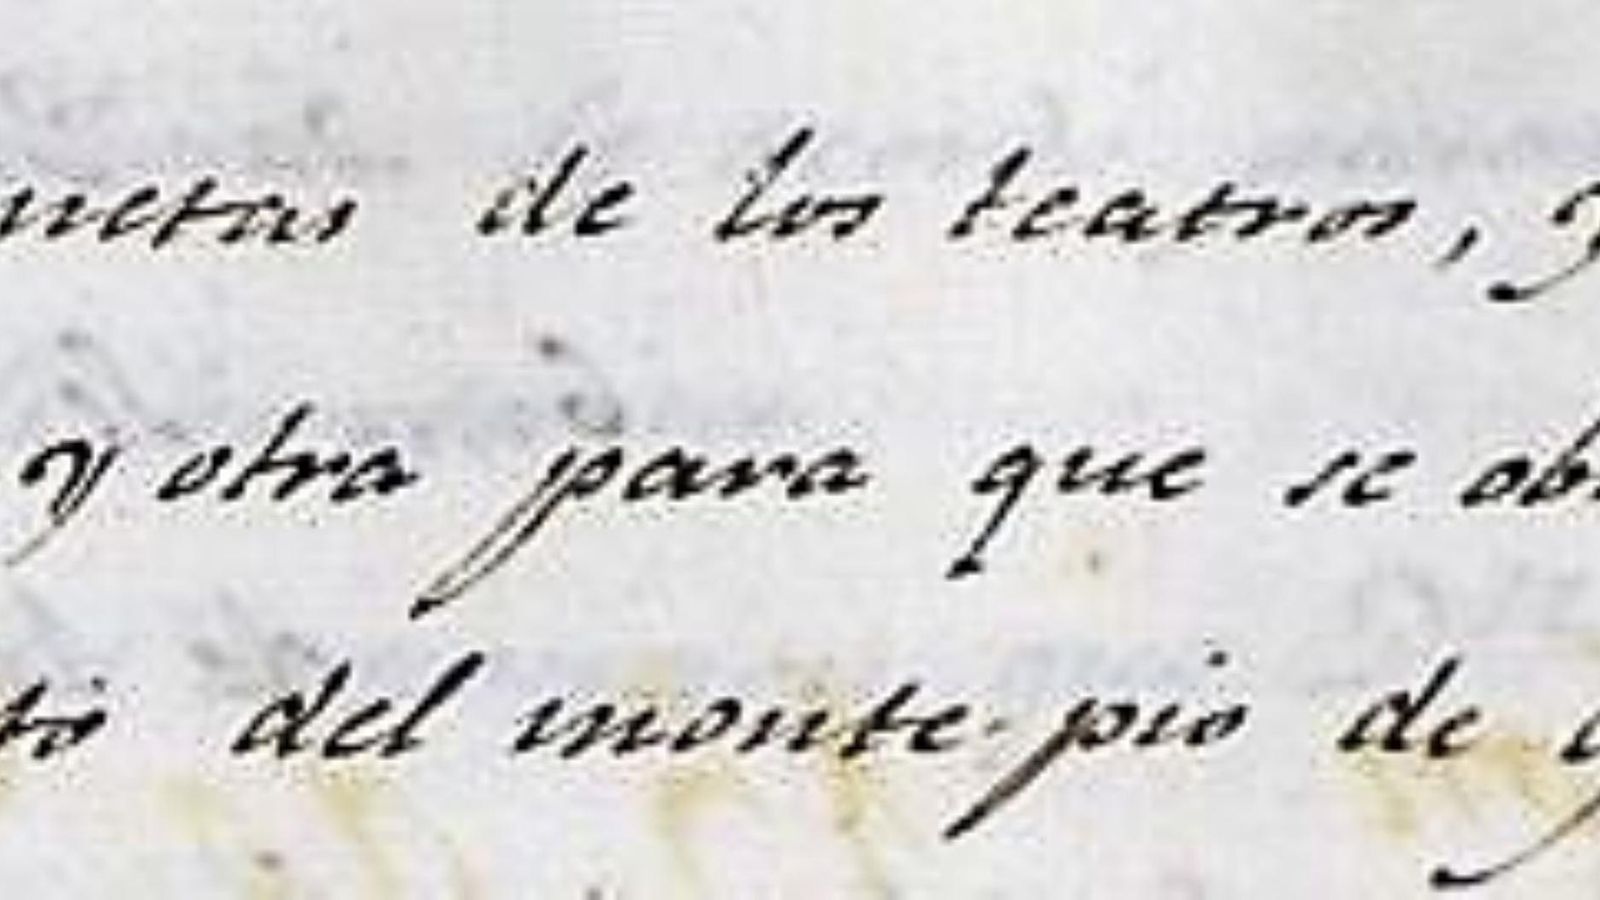 netas de los teatros, y
y otra para que se ob
to del monte-pio de